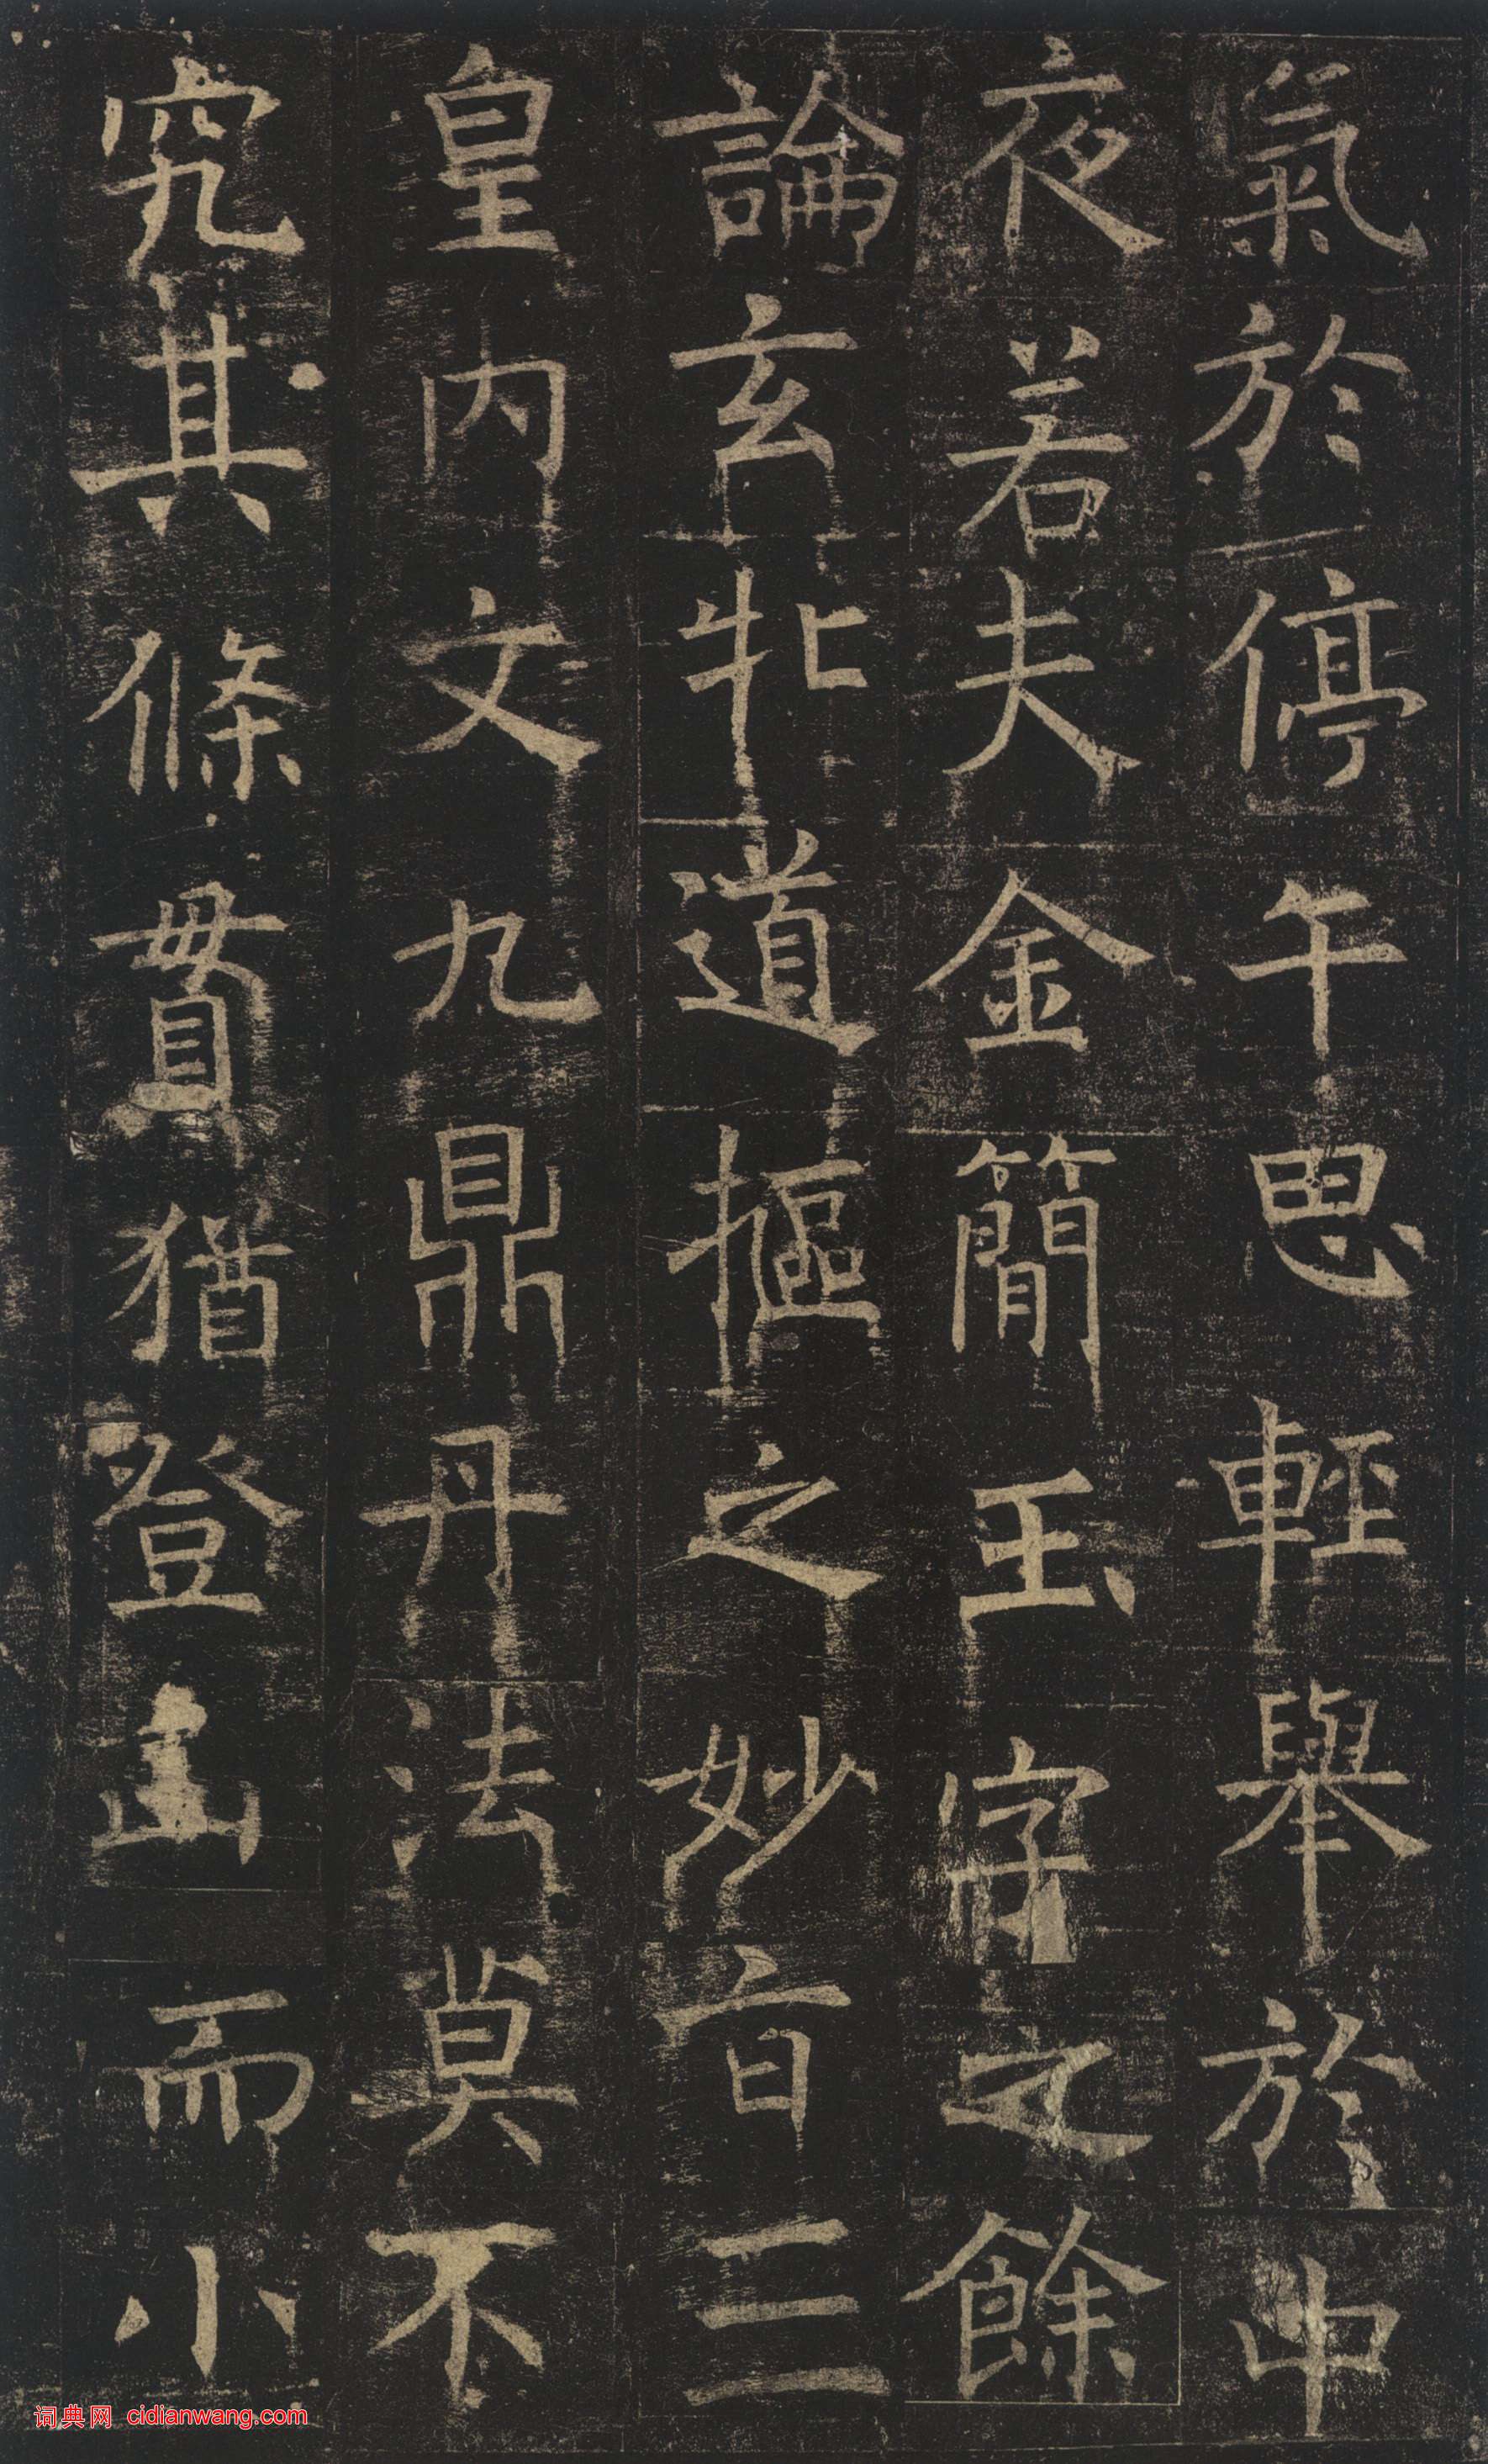 氣於停午思輕舉於中
夜若夫金簡玉字之餘
論玄牝道摳之妙旨三
皇內文九鼎丹法莫不
究其條貫猶登山而小
词典网 cidianwang.com